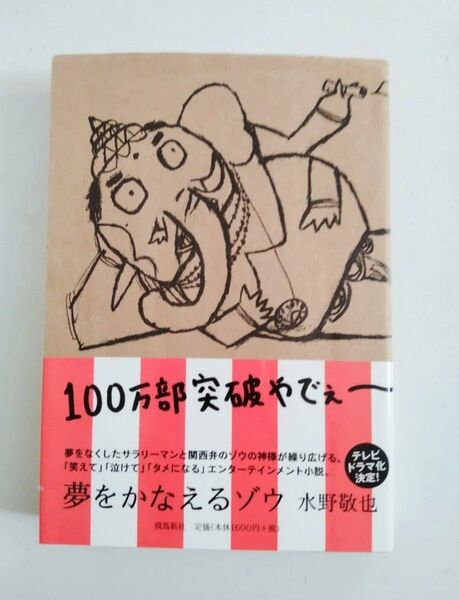 100万部突破やでぇー
夢をなくしたサラリーマンと関西弁のゾウの神様が繰り広げる、
「笑えて」「泣けて」「タメになる」エンターテインメント小説。
テレビ
ドラマ化
決定!
夢をかなえるゾウ 水野敬也
飛鳥新社 定価(本体1600円+税)